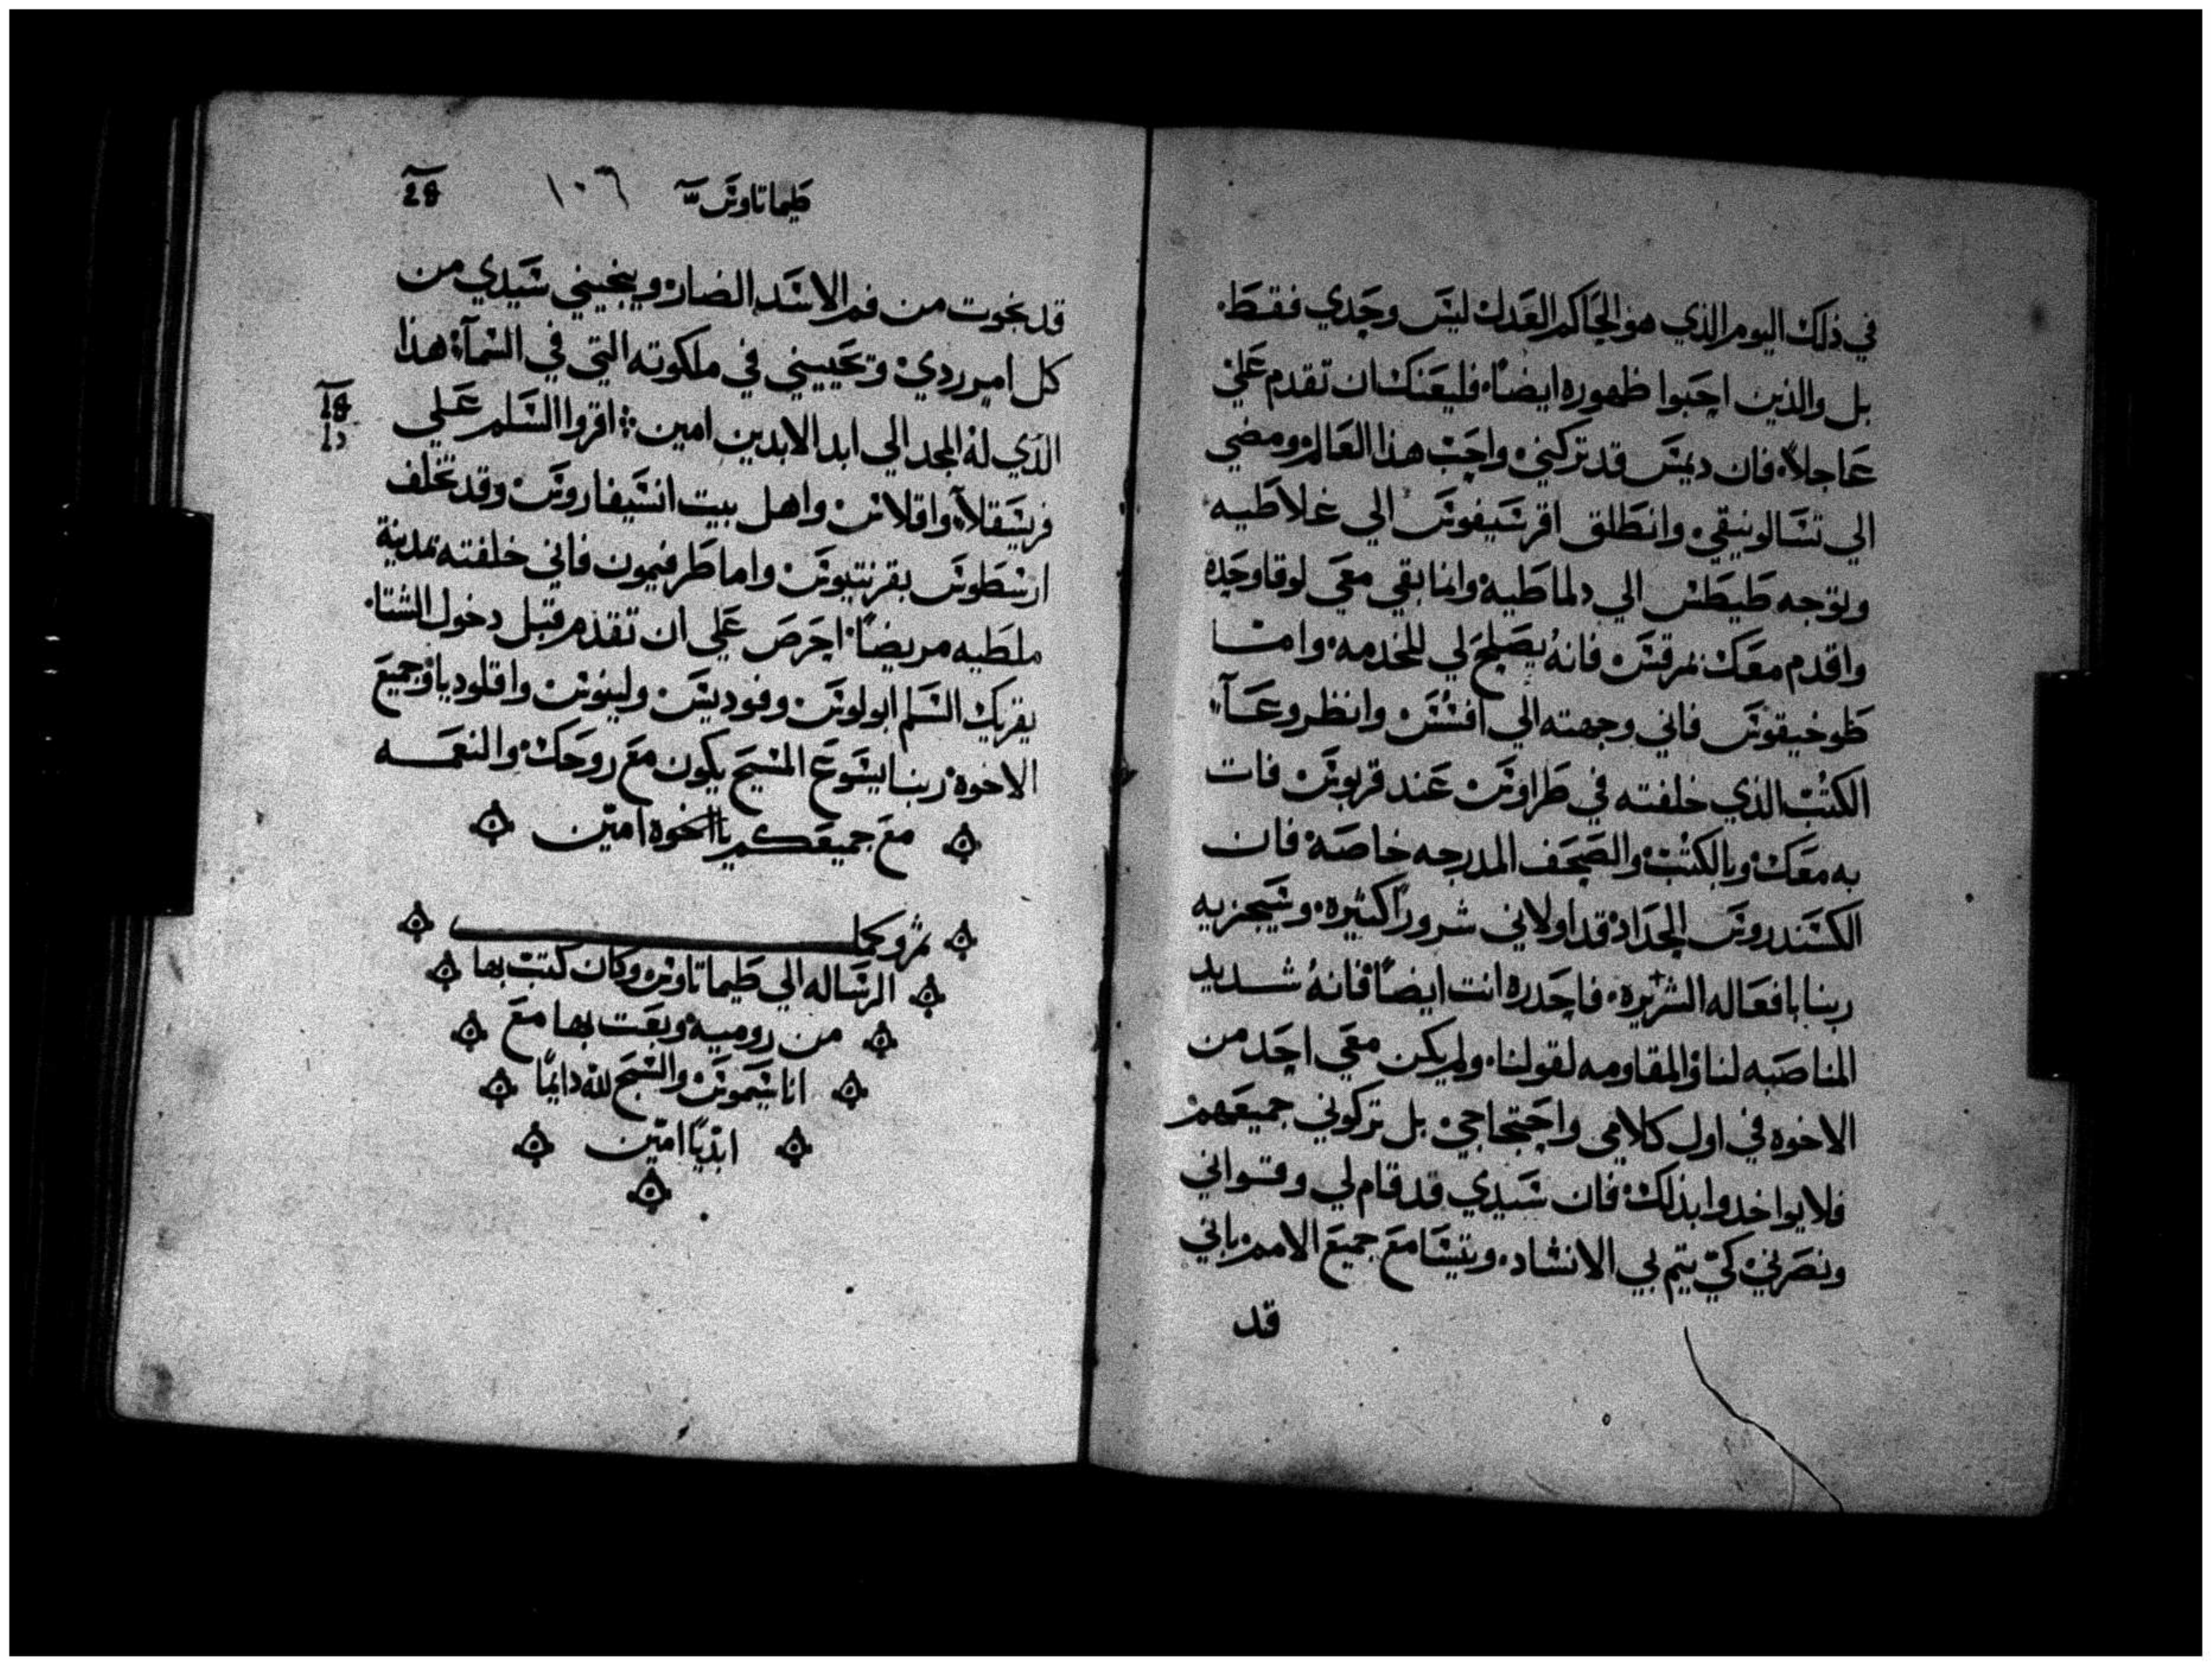 في ذلك اليوم الذي هو الحاكم العدل ليس وحدي فقط.
بل والذين احبوا ظهوره ايضاً. فليعنك ان تقدم علي
عاجلاً. فان ديمس قد تركني واحب هذا العالم ومضي
الي تسالونيقي. وانطلق اقرسيفوس الي غلاطيه
وتوجه طيطس الي دلماطيه وانما بقي معي لوقا وحده
واقدم معك بمرقس. فانهُ يصلح لي للخدمه. وامسا
طوخيقوس فاني وجهته الي افسس. وانظر وعآ
الكتب الذي خلفته في طراوس. عند قربوس فات
به معك. وبالكتب والصحف المدرجه خاصة. فان
الكسندروس الحداد قد اولاني شروراً كثيره. وسيجزيه
ربنا بافعاله الشريره. فاحدره انت ايضاً فانهُ شديد
المناصبه لنا والمقاومه لقولنا. ولم يكن معي احد من
الاخوه في اول كلامي واحتجاجي بل تركوني جميعهم
فلا يواخدوا بذلك. فان سيدي قد قام لي وقواني
ونصرني كي يتم بي الانشاد. وتتسامع جميع الامم باني
قد
طيماتاوس ١٠٦ 28
قد نجوت من فم الاسد الضار. وينجيني سيدي من
كل امر ردي وتحييني في ملكوته التي في السمآ. هذا
الذي لهُ المجد الي ابد الابدين امين ܀ اقروا السلم علي
فريسقلآ. واقلاس واهل بيت انسيفاروس. وقد تخلف
ارسطوس بقرنتيوس. واما طرفيمون فاني خلفته بمدينة
ملطيه مريضاً. احرص علي ان تقدم قبل دخول الشتا.
يقريك السلم ابولوس. وفوديس. ولينوس واقلوديا وجميع
الاخوه. ربنا يشوع المسيح يكون مع روحك والنعمـه
مع جميعكم يا اخوه امين
الرساله الي طيماتاوس وكان كتب بها
من روميه وبعت بها مع
اناسيموس والسبح لله دايماً
ابدياً امين